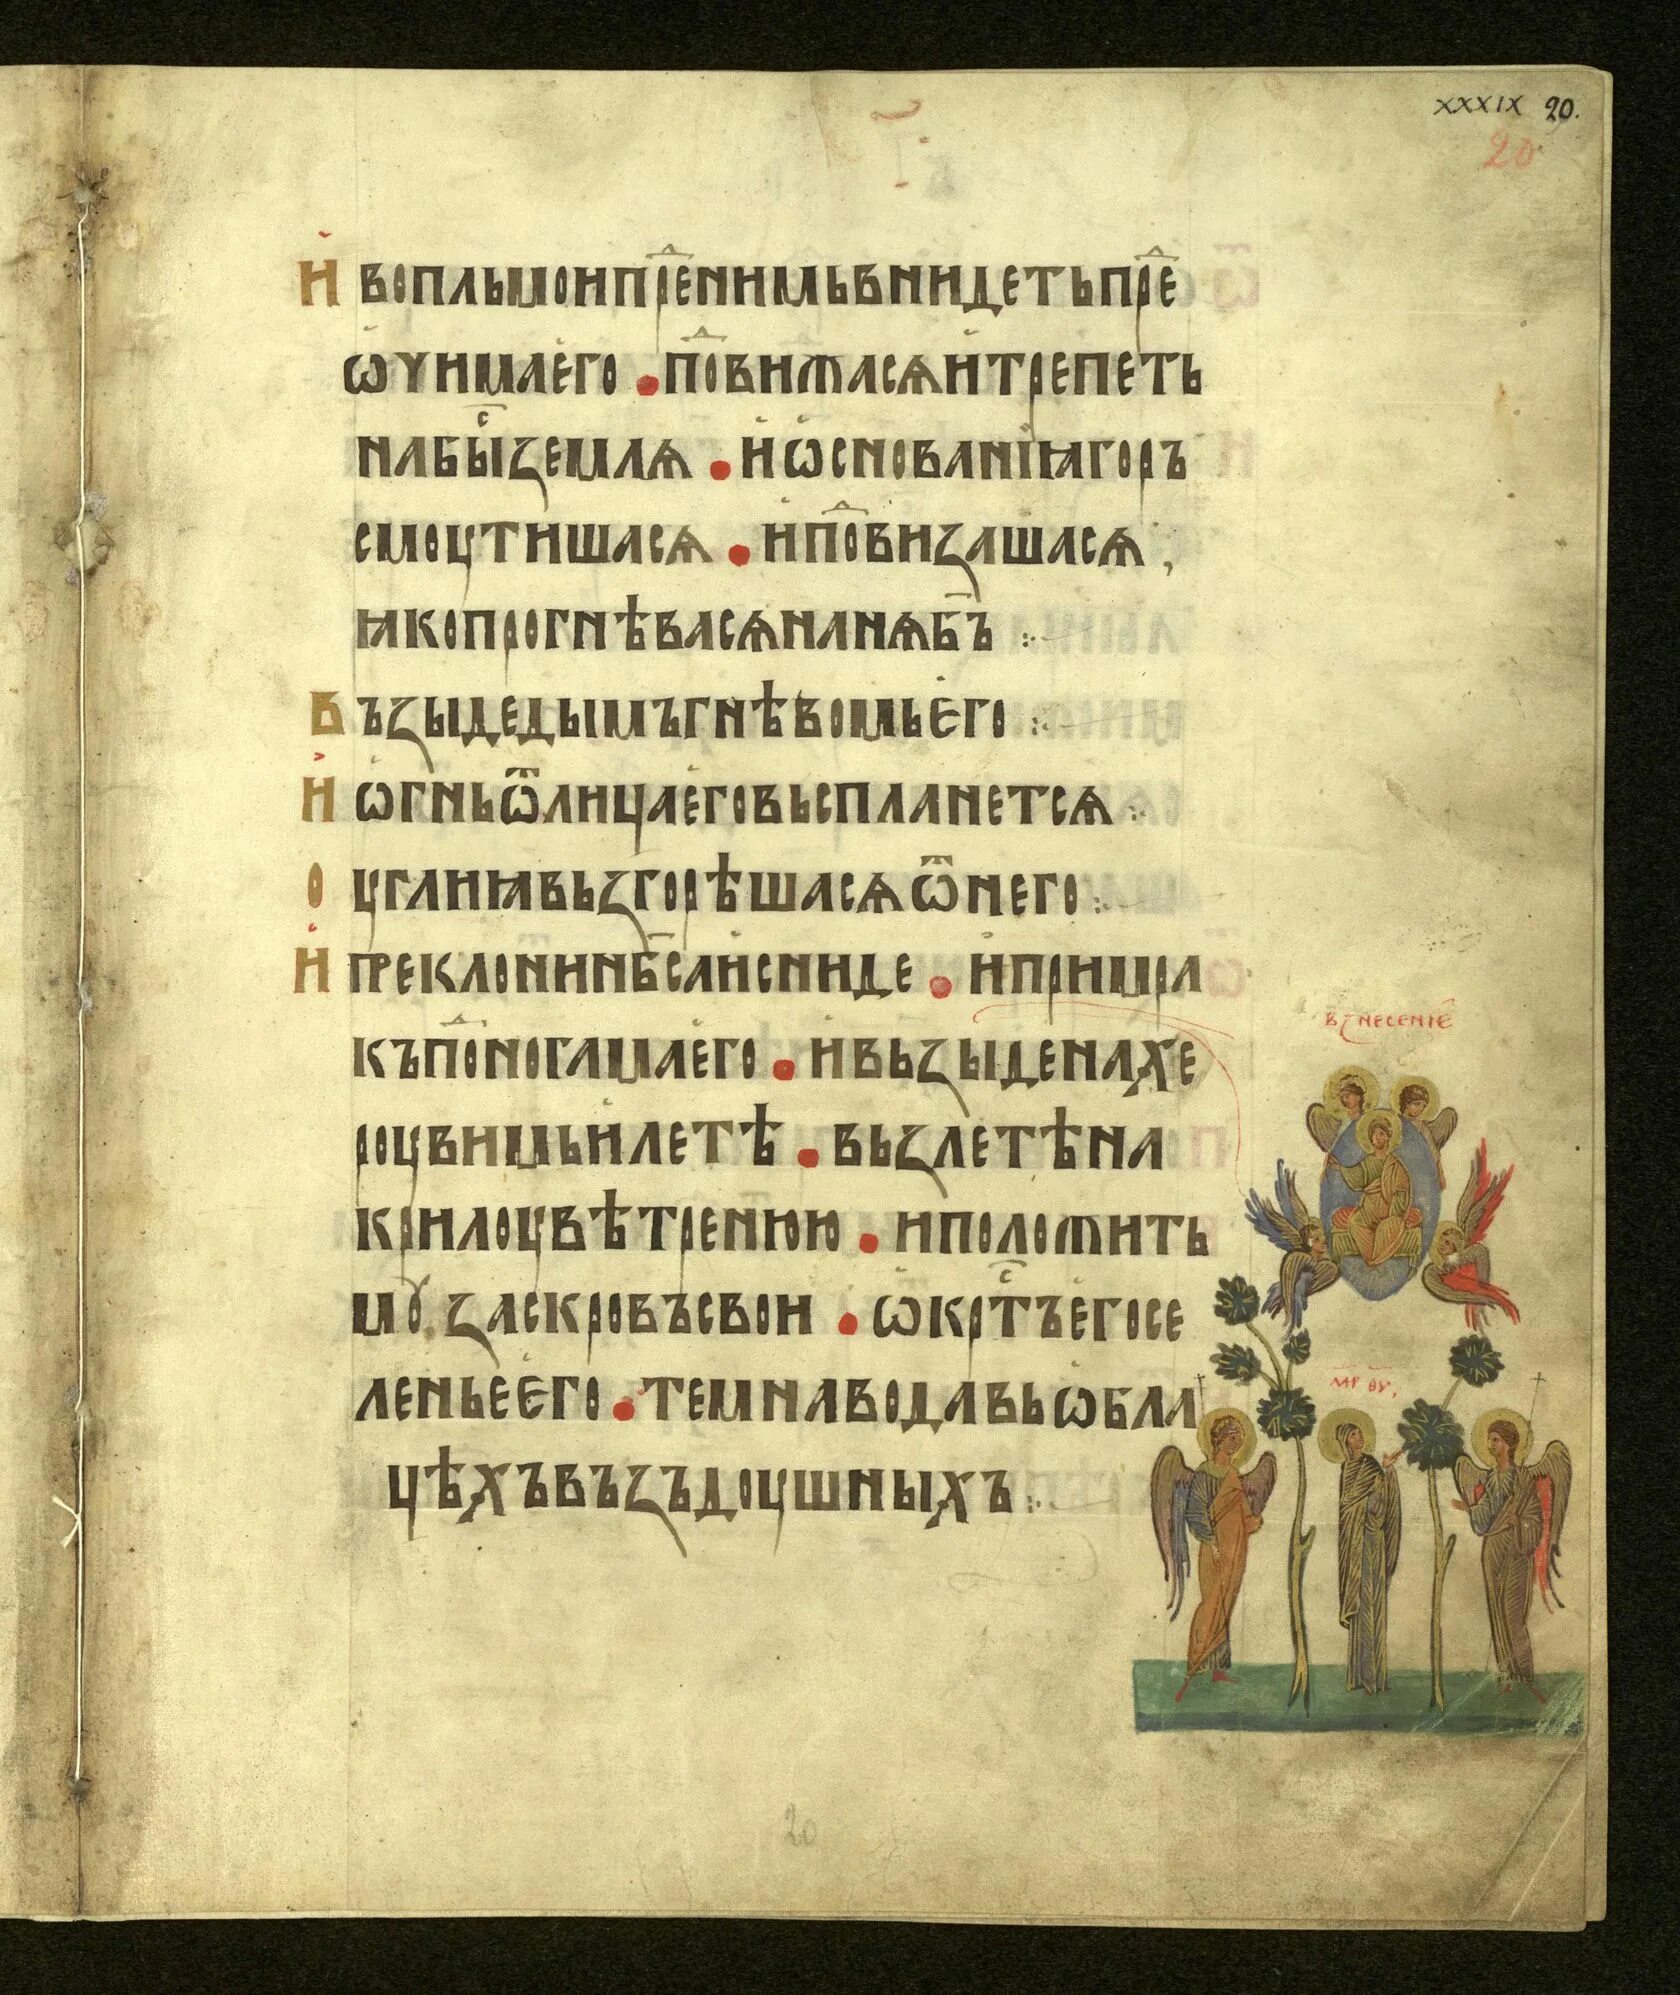 XXXIX 20.
20
И҆ вопльмои прⷣенимь внидеть прⷣе
ѡ҆чима е҆го • пⷣовижасѧ и҆ трепеть
на быⷭ҇ землѧ • и҆ ѡ҆снованїꙗ горъ
смоутишасѧ • и҆ пⷣовизашасѧ,
ꙗко прогнѣвасѧ на нѧ б҃ъ ⁘
Възыде дымъ гнѣвомь є҆го ⁘
И҆ ѡ҆гнь ѿ лица е҆го въспланетсѧ ⁘
Оуглиꙗ възгорѣшасѧ ѿ него ⁘
И҆ преклони нб҃са и҆ сниде • и҆ примра
къ пⷣо ногама е҆го • и҆ възыде на хе
роувимьи летѣ • възлетѣ на
крилоу вѣтренюю • и положить
мꙋ за скровъ свои • ѡ҆крⷭ҇тъ е҆го се
леньее҆го • темна вода въ ѡ҆бла
цѣхъ въздоушныхъ ⁘
взнесенїе
м҃р ѳ҃у
20